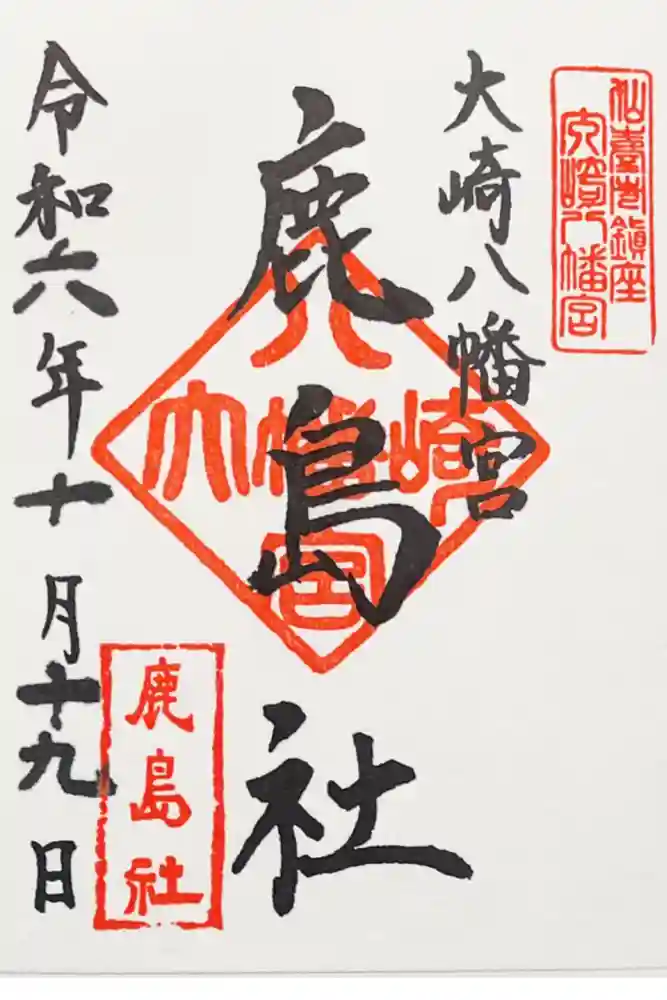 仙臺港鎮座
大崎八幡宮
大崎八幡宮
鹿島社
大崎八幡宮
鹿島社
令和六年十月十九日